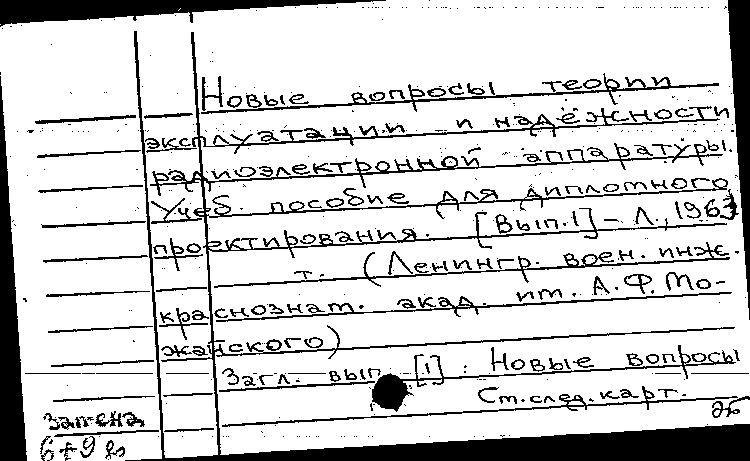 Новые вопросы теории
эксплуатации и надёжности
радиоэлектронной аппаратуры.
Учеб. пособие для дипломного
проектирования. [Вып.1] - Л., 1963
т. (Ленингр. воен. инж.
краснознам. акад. им. А.Ф. Мо-
жайского)
Загл. вып. [1]: Новые вопросы
См. след. карт.
Замена